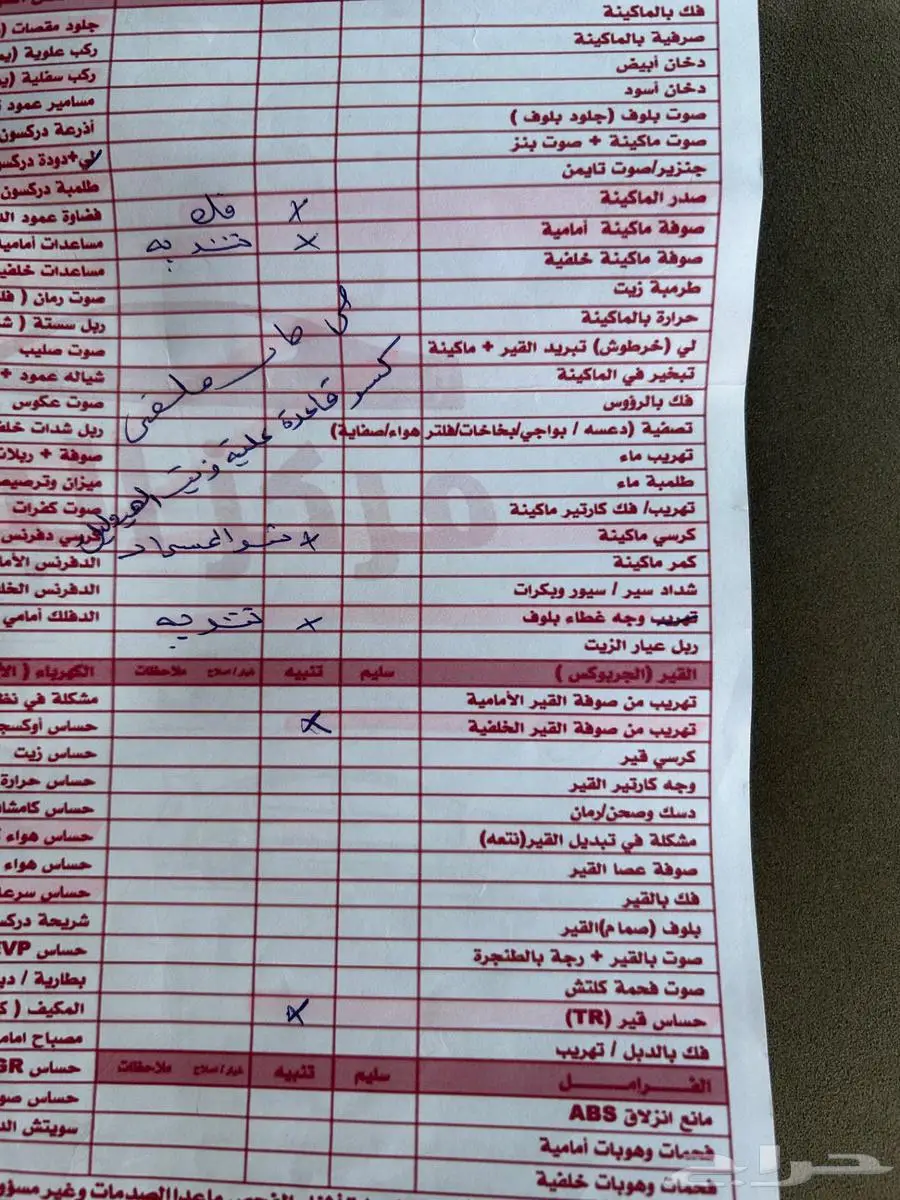 فك بالماكينة
صرفية بالماكينة
دخان أبيض
دخان أسود
صوت بلوف (جلود بلوف )
صوت ماكينة + صوت بنز
جنزير/صوت تايمن
صدر الماكينة × فك
صوفة ماكينة أمامية × تنديه
صوفة ماكينة خلفية
طرمبة زيت
حرارة بالماكينة
لي (خرطوش) تبريد القير + ماكينة
تبخير في الماكينة
فك بالرؤوس
تصفية (دعسه / بواجي/بخاخات/فلتر هواء/صفاية)
تهريب ماء
طلمبة ماء
تهريب/ فك كارتير ماكينة
كرسي ماكينة ×
كمر ماكينة
شداد سير / سيور وبكرات
تهريب وجه غطاء بلوف × تنديه
ربل عيار الزيت
كسر قاعدة علبة زيت
القير (الجربوكس ) سليم تنبيه غيار/اصلاح ملاحظات
تهريب من صوفة القير الأمامية
تهريب من صوفة القير الخلفية ×
كرسي قير
وجه كارتير القير
دسك وصحن/رمان
مشكلة في تبديل القير(نتعه)
صوفة عصا القير
فك بالقير
بلوف (صمام)القير
صوت بالقير + رجة بالطنجرة
صوت فحمة كلتش
حساس قير (TR) ×
فك بالدبل / تهريب
الفرامل سليم تنبيه غيار/اصلاح ملاحظات
مانع انزلاق ABS
فحمات وهوبات أمامية
فحمات وهوبات خلفية
جلود مقصات
ركب علوية
ركب سفلية
مسامير عمود
أذرعة دركسون
لي+دودة
طلمبة دركسون
فضاوة عمود
مساعدات أمامية
مساعدات خلفية
صوت رمان
ربل سستة
صوت صليب
شياله عمود +
صوت عكوس
ربل شدات
صوفة + ربلات
ميزان وترصيص
صوت كفرات
كرسي دفرنس
الدفرنس
الدفرنس
الدفلك أمامي
الكهرباء
مشكلة في
حساس
حساس زيت
حساس حرارة
حساس
حساس هواء
حساس هواء
حساس
شريحة
حساس EVP
بطارية /
المكيف
مصباح
حساس
حساس
سويتش